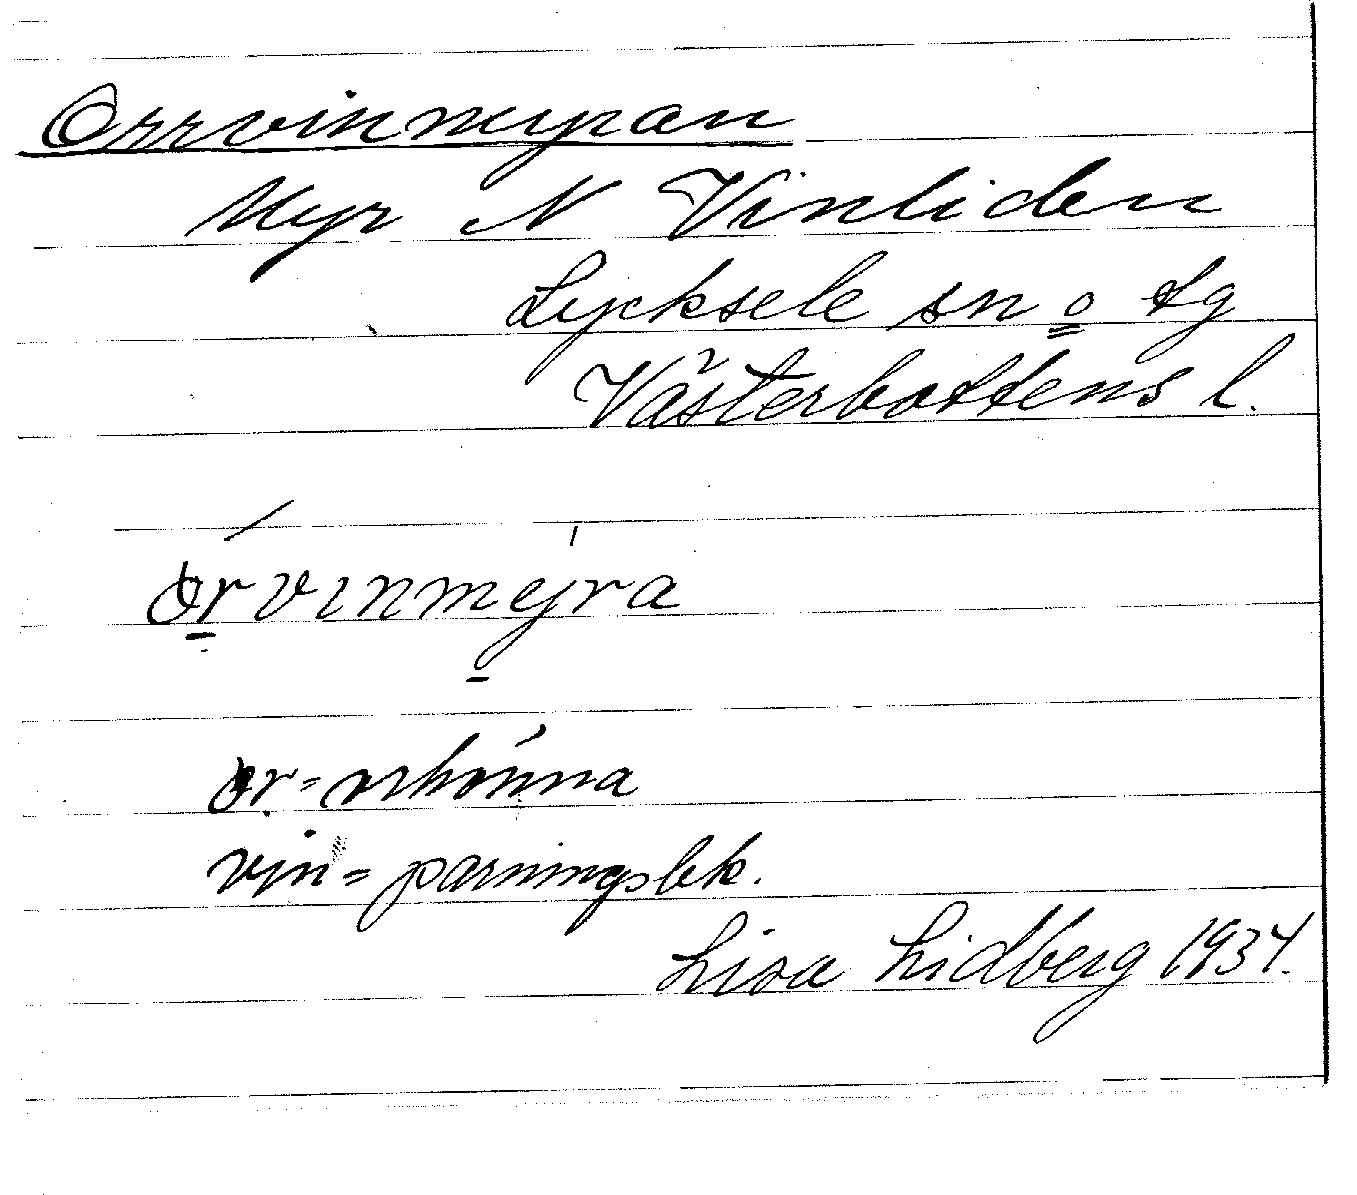 Orrvinmyran
Myr N Vinliden
Lycksele sn o tg
Västerbottens l.
vin = parningslek.
Lisa Lidberg 1934.